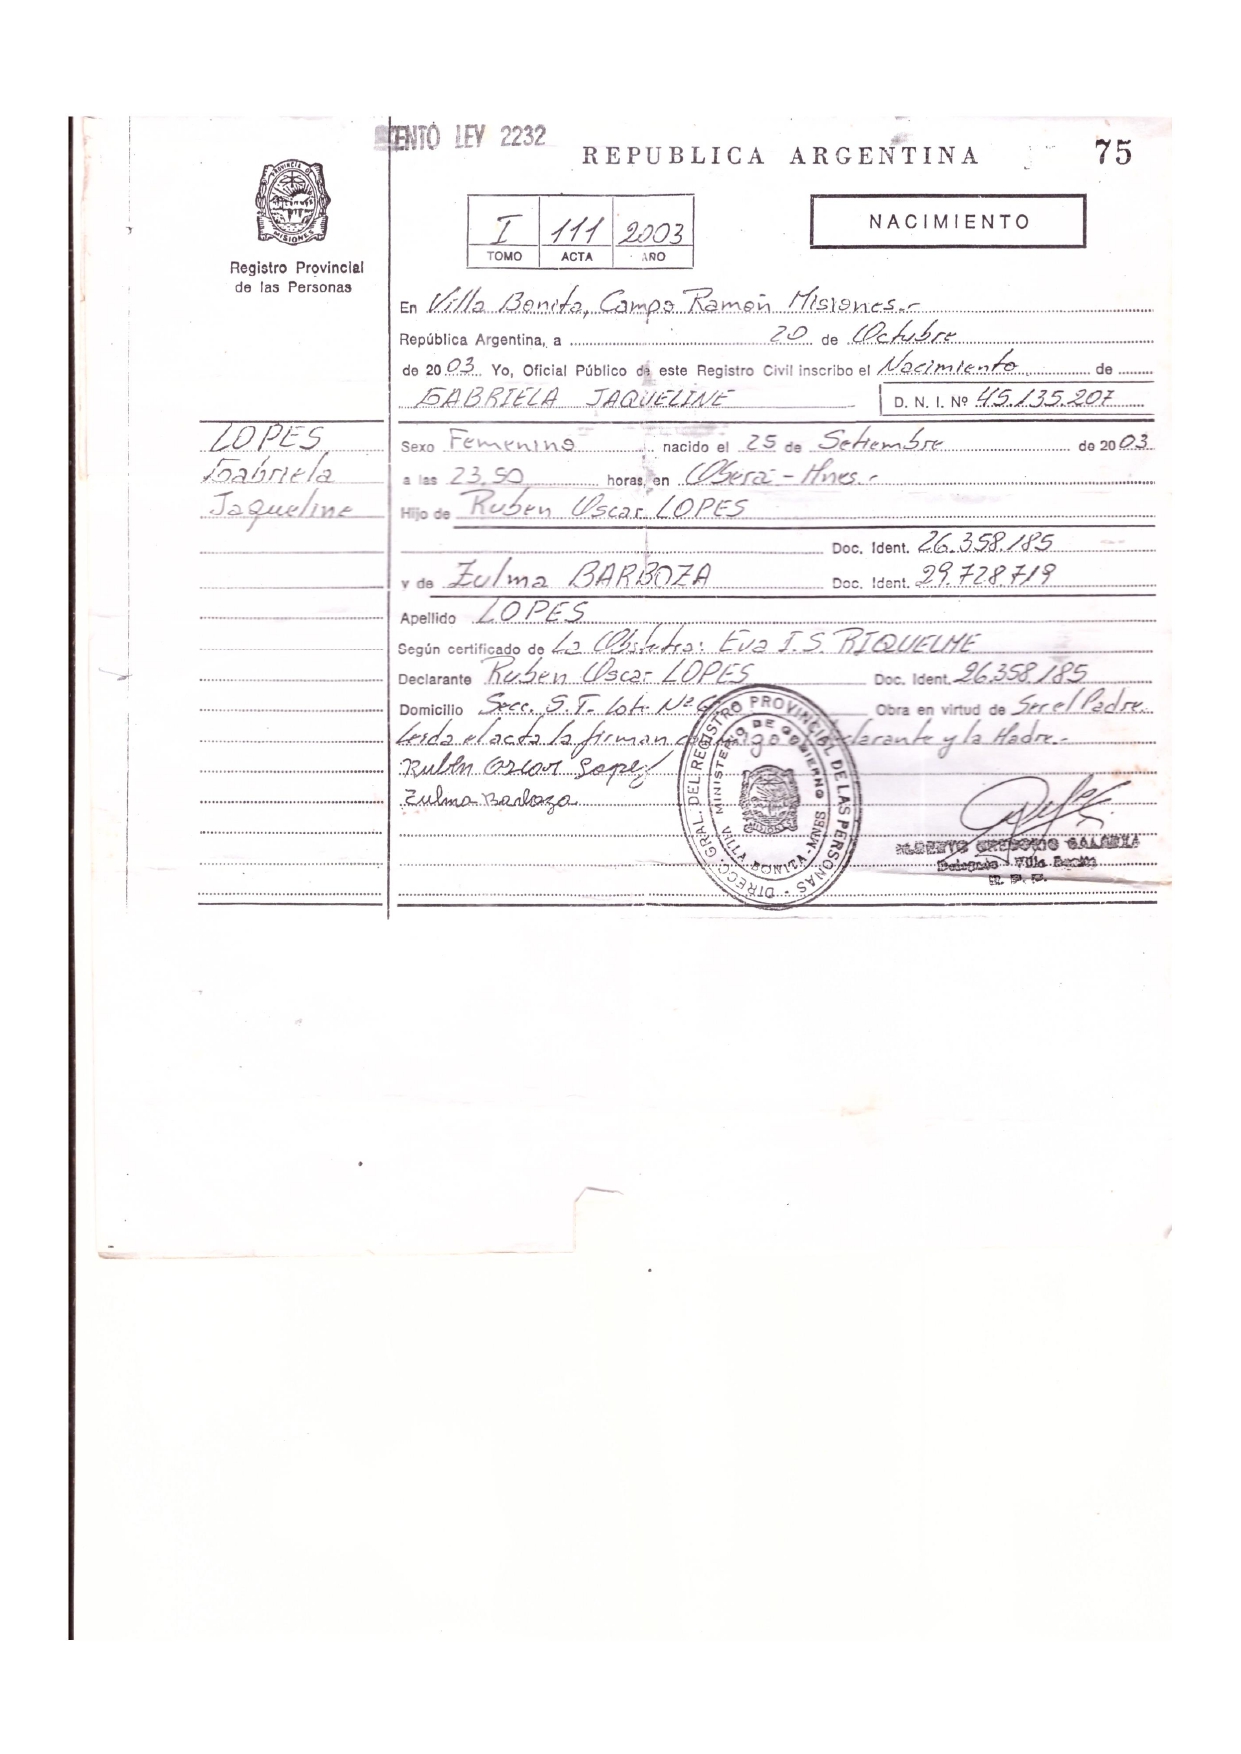 ENTO LEY 2232
REPUBLICA ARGENTINA
75
PROVINCIA D
MISIONES
Registro Provincial
de las Personas
I 111 2003
TOMO ACTA AÑO
NACIMIENTO
En Villa Bonita, Campo Ramón Misiones.-
República Argentina, a 20 de Octubre
de 2003 Yo, Oficial Público de este Registro Civil inscribo el Nacimiento de
GABRIELA JAQUELINE D. N. I. Nº 45.135.207
LOPES
Gabriela
Jaqueline
Sexo Femenino nacido el 25 de Setiembre de 2003
a las 23,50 horas, en Oberá - Mnes.-
Hijo de Ruben Oscar LOPES
Doc. Ident. 26.358.185
y de Zulma BARBOZA Doc. Ident. 29.728.719
Apellido LOPES
Según certificado de La Obstetra: Eva I.S. RIQUELME
Declarante Ruben Oscar LOPES Doc. Ident. 26.358.185
Domicilio Secc. S.T. Lot. Nº 6 Obra en virtud de Ser el Padre
Leida el acta la firman clarante y la Madre.-
Rubén Oscar Lopez
Zulma Barboza
DIRECC. GRAL. DEL REGISTRO PROVINCIAL DE LAS PERSONAS
MINISTERIO DE GOBIERNO
VILLA BONITA - MNES
Delegado Villa Bonita
R. P. P.